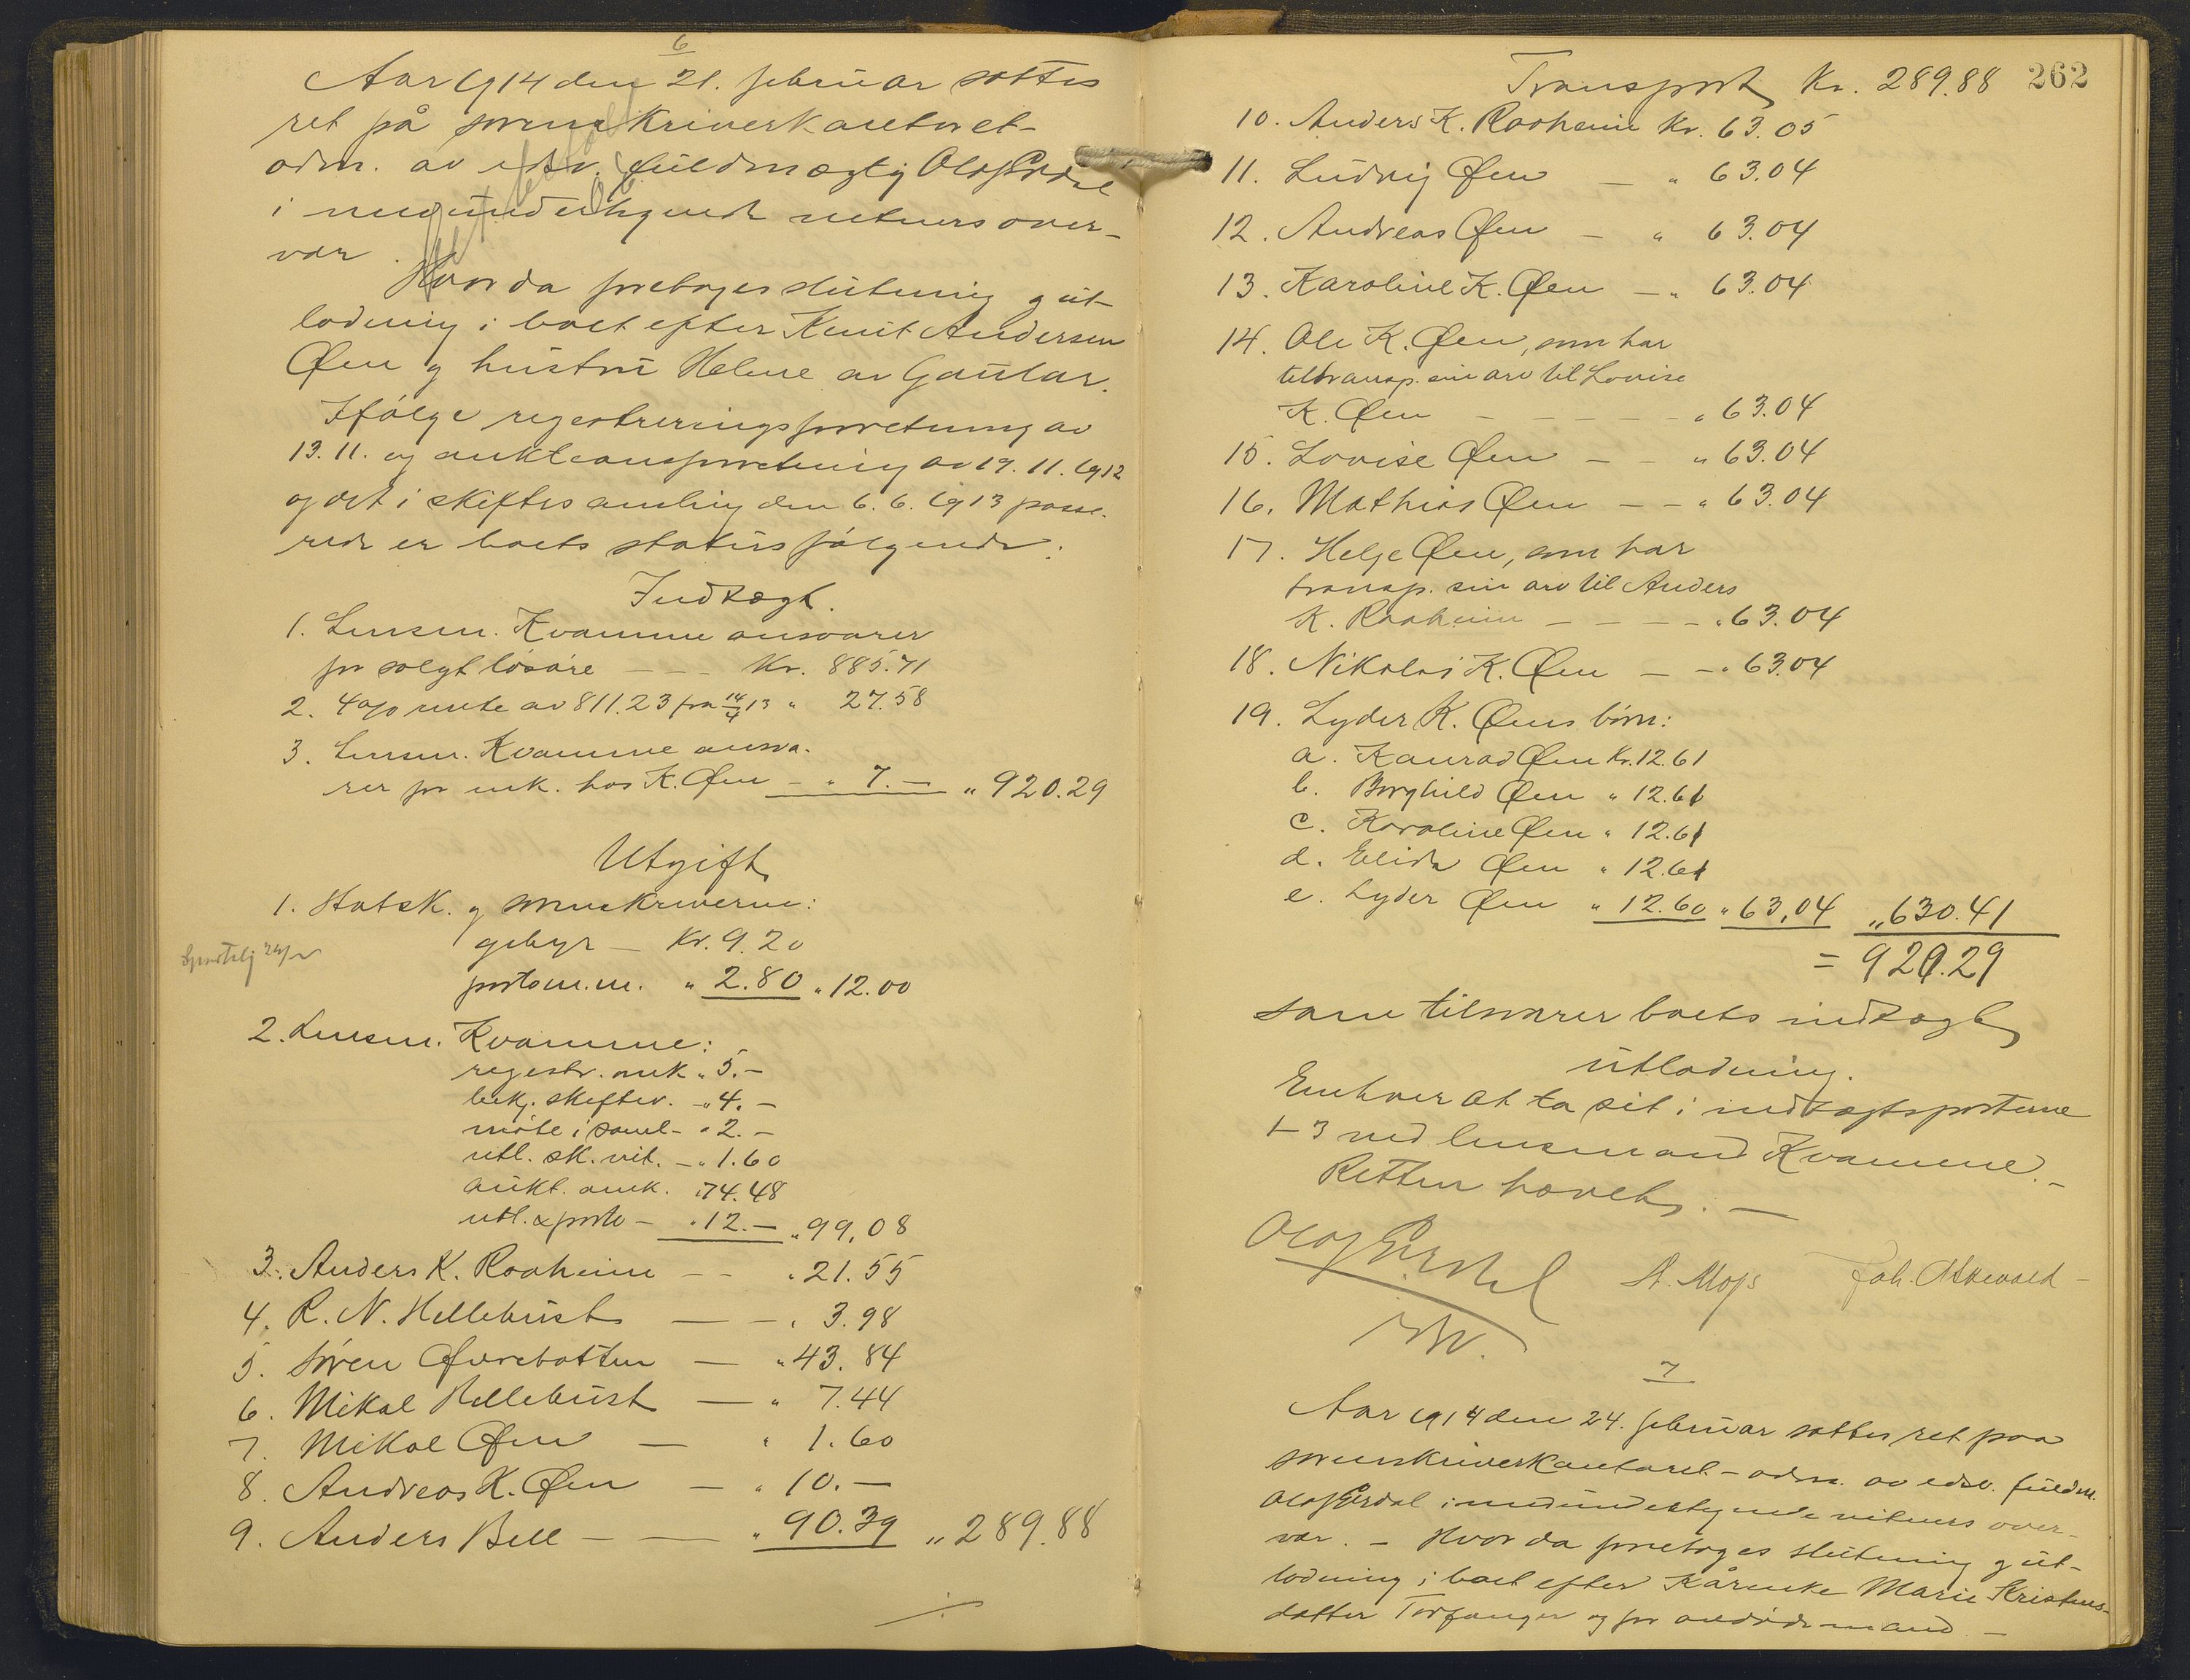 6
Aar 1914 den 21. februar sattes
ret på sorenskriverkontoret
adm. av edsv. fuldmægtig Olaf Gjerdal
i medunderskrevne vitners over-
vær.
Hvorda foretoges slutning og ut-
lodning i boet efter Knut Andersen
Øen og hustru Helene av Gaular.
Ifølge registreringsforretning av
13.11. og auktionsforretning av 19.11.1912
og det i skiftesamling den 6.6.1913 passe-
rede er boets status følgende:
Indtægt.
1. Lensm. Kvamme ansvarer
for solgt løsøre — — Kr. 885.71
2. 4 % rente av 811.23 fra 14/4 13 " 27.58
3. Lensm. Kvamme ansva-
rer for ink. hos K. Øen — " 7.— " 920.29
Utgift
1. Statsk. og sorenskriveren:
gebyr — Kr. 9.20
porto m.m. " 2.80 " 12.00
2. Lensm. Kvamme:
registr. omk. " 5.—
bekj. skiftev. — " 4.—
møte i saml. — " 2.—
utl. sk. vit. — " 1.60
aukt. omk. " 74.48
utl. & porto — " 12.— " 99,08
3. Anders K. Raaheim — — " 21.55
4. R. N. Hellebust — — " 3.98
5. Søren Øvrebotten — " 43.84
6. Mikal Hellebust — " 7.44
7. Mikal Øen — " 1.60
8. Andreas K. Øen — " 10.—
9. Anders Bell — — " 90.39 " 289.88
262
Transport Kr. 289.88
10. Anders K. Raaheim Kr. 63.05
11. Ludvig Øen — " 63.04
12. Andreas Øen — " 63.04
13. Karoline K. Øen — " 63.04
14. Ole K. Øen, som har
tiltransp. sin arv til Lovise
K. Øen — — — — " 63.04
15. Lovise Øen — — " 63.04
16. Mathias Øen — — " 63.04
17. Helge Øen, som har
transp. sin arv til Anders
K. Raaheim — — — — " 63.04
18. Nikolai K. Øen — — " 63.04
19. Lyder K. Øens børn:
a. Konrad Øen Kr. 12.61
b. Borghild Øen " 12.61
c. Karoline Øen " 12.61
d. Elida Øen " 12.61
e. Lyder Øen " 12.60 " 63,04 " 630.41
= 920.29
som tilsvarer boets indtægt
utlodning.
Enhver at ta sit i indtægtsposterne
1-3 ved lensmand Kvamme.—
Retten hævet. —
Olaf Gjerdal
7
Aar 1914 den 24. februar sattes ret paa
sorenskriverkontoret — adm. av edsv. fuldm.
Olaf Gjerdal i medunderskrevne vitners over-
vær. — Hvor da foretoges slutning og ut-
lodning i boet efter Kårenke Marie Kristens-
datter Torfanger og før avdøde mand —